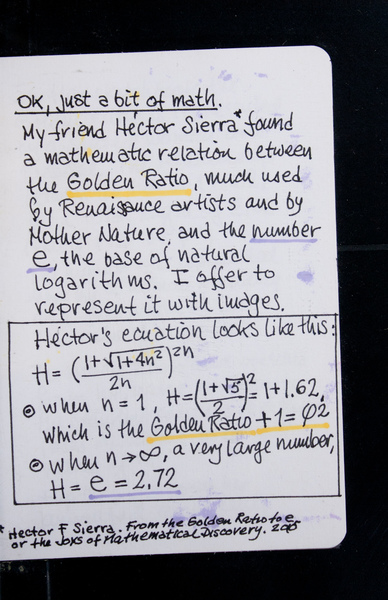 OK, just a bit of math.
My friend Héctor Sierra* found
a mathematic relation between
the Golden Ratio, much used
by Renaissance artists and by
Mother Nature, and the number
e, the base of natural
logarithms. I offer to
represent it with images.
Héctor's equation looks like this:
H = ((1+√(1+4n²))/2n)^2n
when n = 1, H = ((1+√5)/2)² = 1+1.62,
which is the Golden Ratio + 1 = φ2
when n → ∞, a very large number,
H = e = 2.72
* Hector F Sierra. From the Golden Ratio to e
or the Joys of Mathematical Discovery. 2015